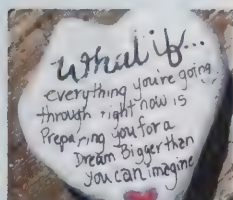 What if...
everything you're going
through right now is
Preparing you for a
Dream Bigger than
you can imagine